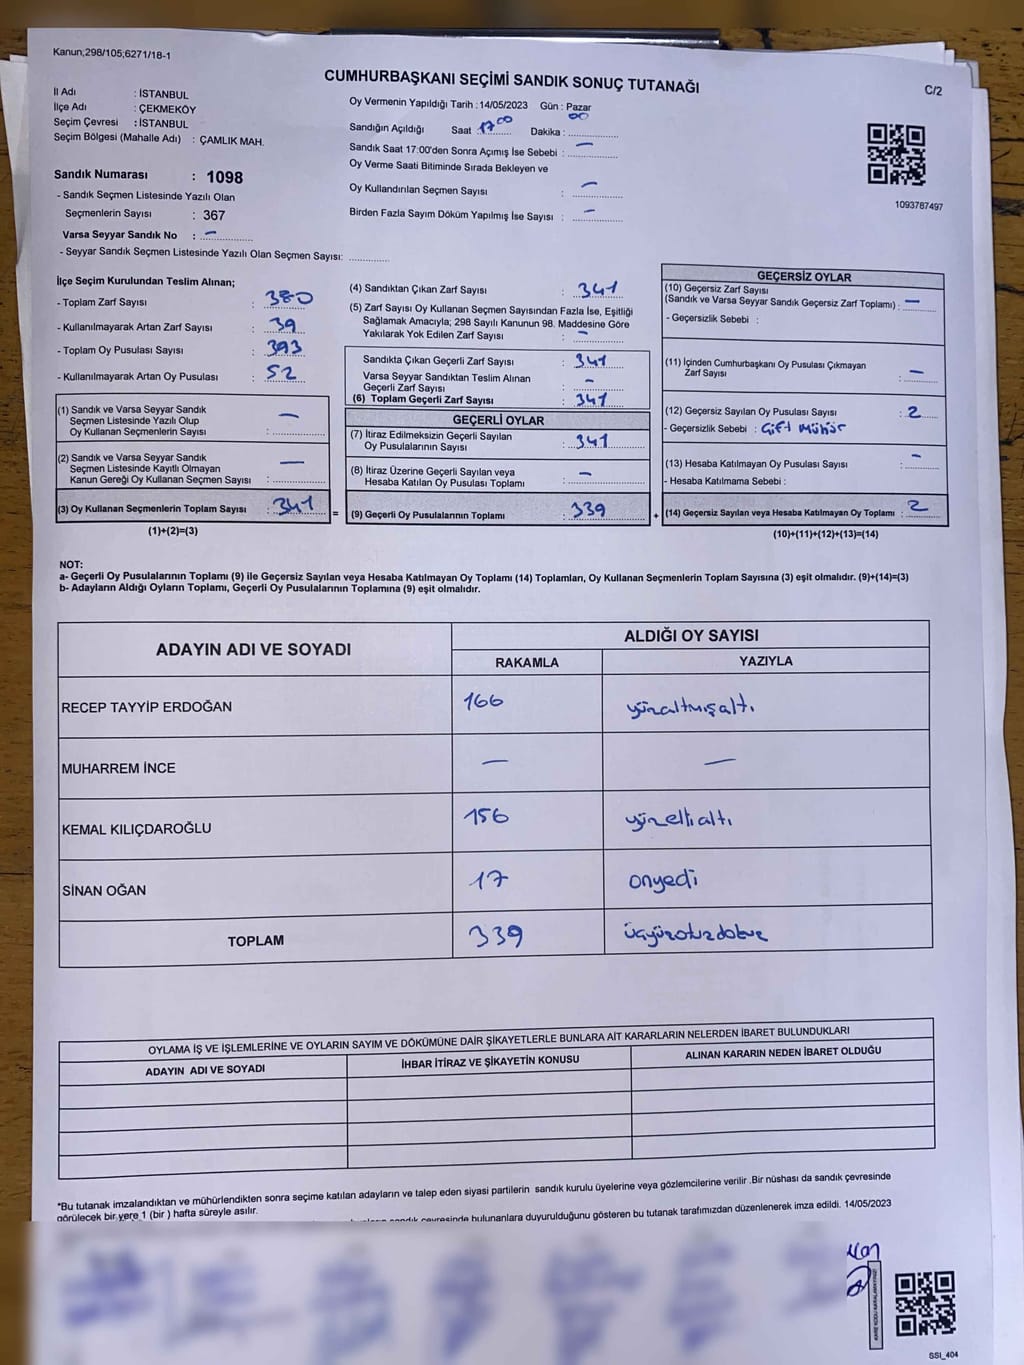 Kanun;298/105;6271/18-1
CUMHURBAŞKANI SEÇİMİ SANDIK SONUÇ TUTANAĞI
C/2
İl Adı : İSTANBUL
İlçe Adı : ÇEKMEKÖY
Seçim Çevresi : İSTANBUL
Seçim Bölgesi (Mahalle Adı) : ÇAMLIK MAH.
Sandık Numarası : 1098
- Sandık Seçmen Listesinde Yazılı Olan
Seçmenlerin Sayısı : 367
Varsa Seyyar Sandık No : –
- Seyyar Sandık Seçmen Listesinde Yazılı Olan Seçmen Sayısı: ............
Oy Vermenin Yapıldığı Tarih : 14/05/2023 Gün : Pazar
Sandığın Açıldığı Saat 17 00 Dakika : 00
Sandık Saat 17:00'den Sonra Açımış İse Sebebi : –
Oy Verme Saati Bitiminde Sırada Bekleyen ve
Oy Kullandırılan Seçmen Sayısı : –
Birden Fazla Sayım Döküm Yapılmış İse Sayısı : –
1093787497
İlçe Seçim Kurulundan Teslim Alınan;
- Toplam Zarf Sayısı : 380
- Kullanılmayarak Artan Zarf Sayısı : 39
- Toplam Oy Pusulası Sayısı : 393
- Kullanılmayarak Artan Oy Pusulası : 52
(1) Sandık ve Varsa Seyyar Sandık
Seçmen Listesinde Yazılı Olup
Oy Kullanan Seçmenlerin Sayısı : –
(2) Sandık ve Varsa Seyyar Sandık
Seçmen Listesinde Kayıtlı Olmayan
Kanun Gereği Oy Kullanan Seçmen Sayısı : –
(3) Oy Kullanan Seçmenlerin Toplam Sayısı : 341
(1)+(2)=(3)
=
(4) Sandıktan Çıkan Zarf Sayısı : 341
(5) Zarf Sayısı Oy Kullanan Seçmen Sayısından Fazla İse, Eşitliği
Sağlamak Amacıyla; 298 Sayılı Kanunun 98. Maddesine Göre
Yakılarak Yok Edilen Zarf Sayısı : –
Sandıkta Çıkan Geçerli Zarf Sayısı : 341
Varsa Seyyar Sandıktan Teslim Alınan
Geçerli Zarf Sayısı : –
(6) Toplam Geçerli Zarf Sayısı : 341
GEÇERLİ OYLAR
(7) İtiraz Edilmeksizin Geçerli Sayılan
Oy Pusulalarının Sayısı : 341
(8) İtiraz Üzerine Geçerli Sayılan veya
Hesaba Katılan Oy Pusulası Toplamı : –
(9) Geçerli Oy Pusulalarının Toplamı : 339
+
GEÇERSİZ OYLAR
(10) Geçersiz Zarf Sayısı
(Sandık ve Varsa Seyyar Sandık Geçersiz Zarf Toplamı) : –
- Geçersizlik Sebebi :
(11) İçinden Cumhurbaşkanı Oy Pusulası Çıkmayan
Zarf Sayısı : –
(12) Geçersiz Sayılan Oy Pusulası Sayısı : 2
- Geçersizlik Sebebi : Çift Mühür
(13) Hesaba Katılmayan Oy Pusulası Sayısı : –
- Hesaba Katılmama Sebebi :
(14) Geçersiz Sayılan veya Hesaba Katılmayan Oy Toplamı : 2
(10)+(11)+(12)+(13)=(14)
NOT:
a- Geçerli Oy Pusulalarının Toplamı (9) ile Geçersiz Sayılan veya Hesaba Katılmayan Oy Toplamı (14) Toplamları, Oy Kullanan Seçmenlerin Toplam Sayısına (3) eşit olmalıdır. (9)+(14)=(3)
b- Adayların Aldığı Oyların Toplamı, Geçerli Oy Pusulalarının Toplamına (9) eşit olmalıdır.
ADAYIN ADI VE SOYADI
ALDIĞI OY SAYISI
RAKAMLA YAZIYLA
RECEP TAYYİP ERDOĞAN 166 yüzaltmışaltı
MUHARREM İNCE – –
KEMAL KILIÇDAROĞLU 156 yüzellialtı
SİNAN OĞAN 17 onyedi
TOPLAM 339 üçyüzotuzdokuz
OYLAMA İŞ VE İŞLEMLERİNE VE OYLARIN SAYIM VE DÖKÜMÜNE DAİR ŞİKAYETLERLE BUNLARA AİT KARARLARIN NELERDEN İBARET BULUNDUKLARI
ADAYIN ADI VE SOYADI
İHBAR İTİRAZ VE ŞİKAYETİN KONUSU
ALINAN KARARIN NEDEN İBARET OLDUĞU
*Bu tutanak imzalandıktan ve mühürlendikten sonra seçime katılan adayların ve talep eden siyasi partilerin sandık kurulu üyelerine veya gözlemcilerine verilir .Bir nüshası da sandık çevresinde
görülecek bir yere 1 (bir ) hafta süreyle asılır.
sandık çevresinde bulunanlara duyurulduğunu gösteren bu tutanak tarafımızdan düzenlenerek imza edildi. 14/05/2023
SSI_404